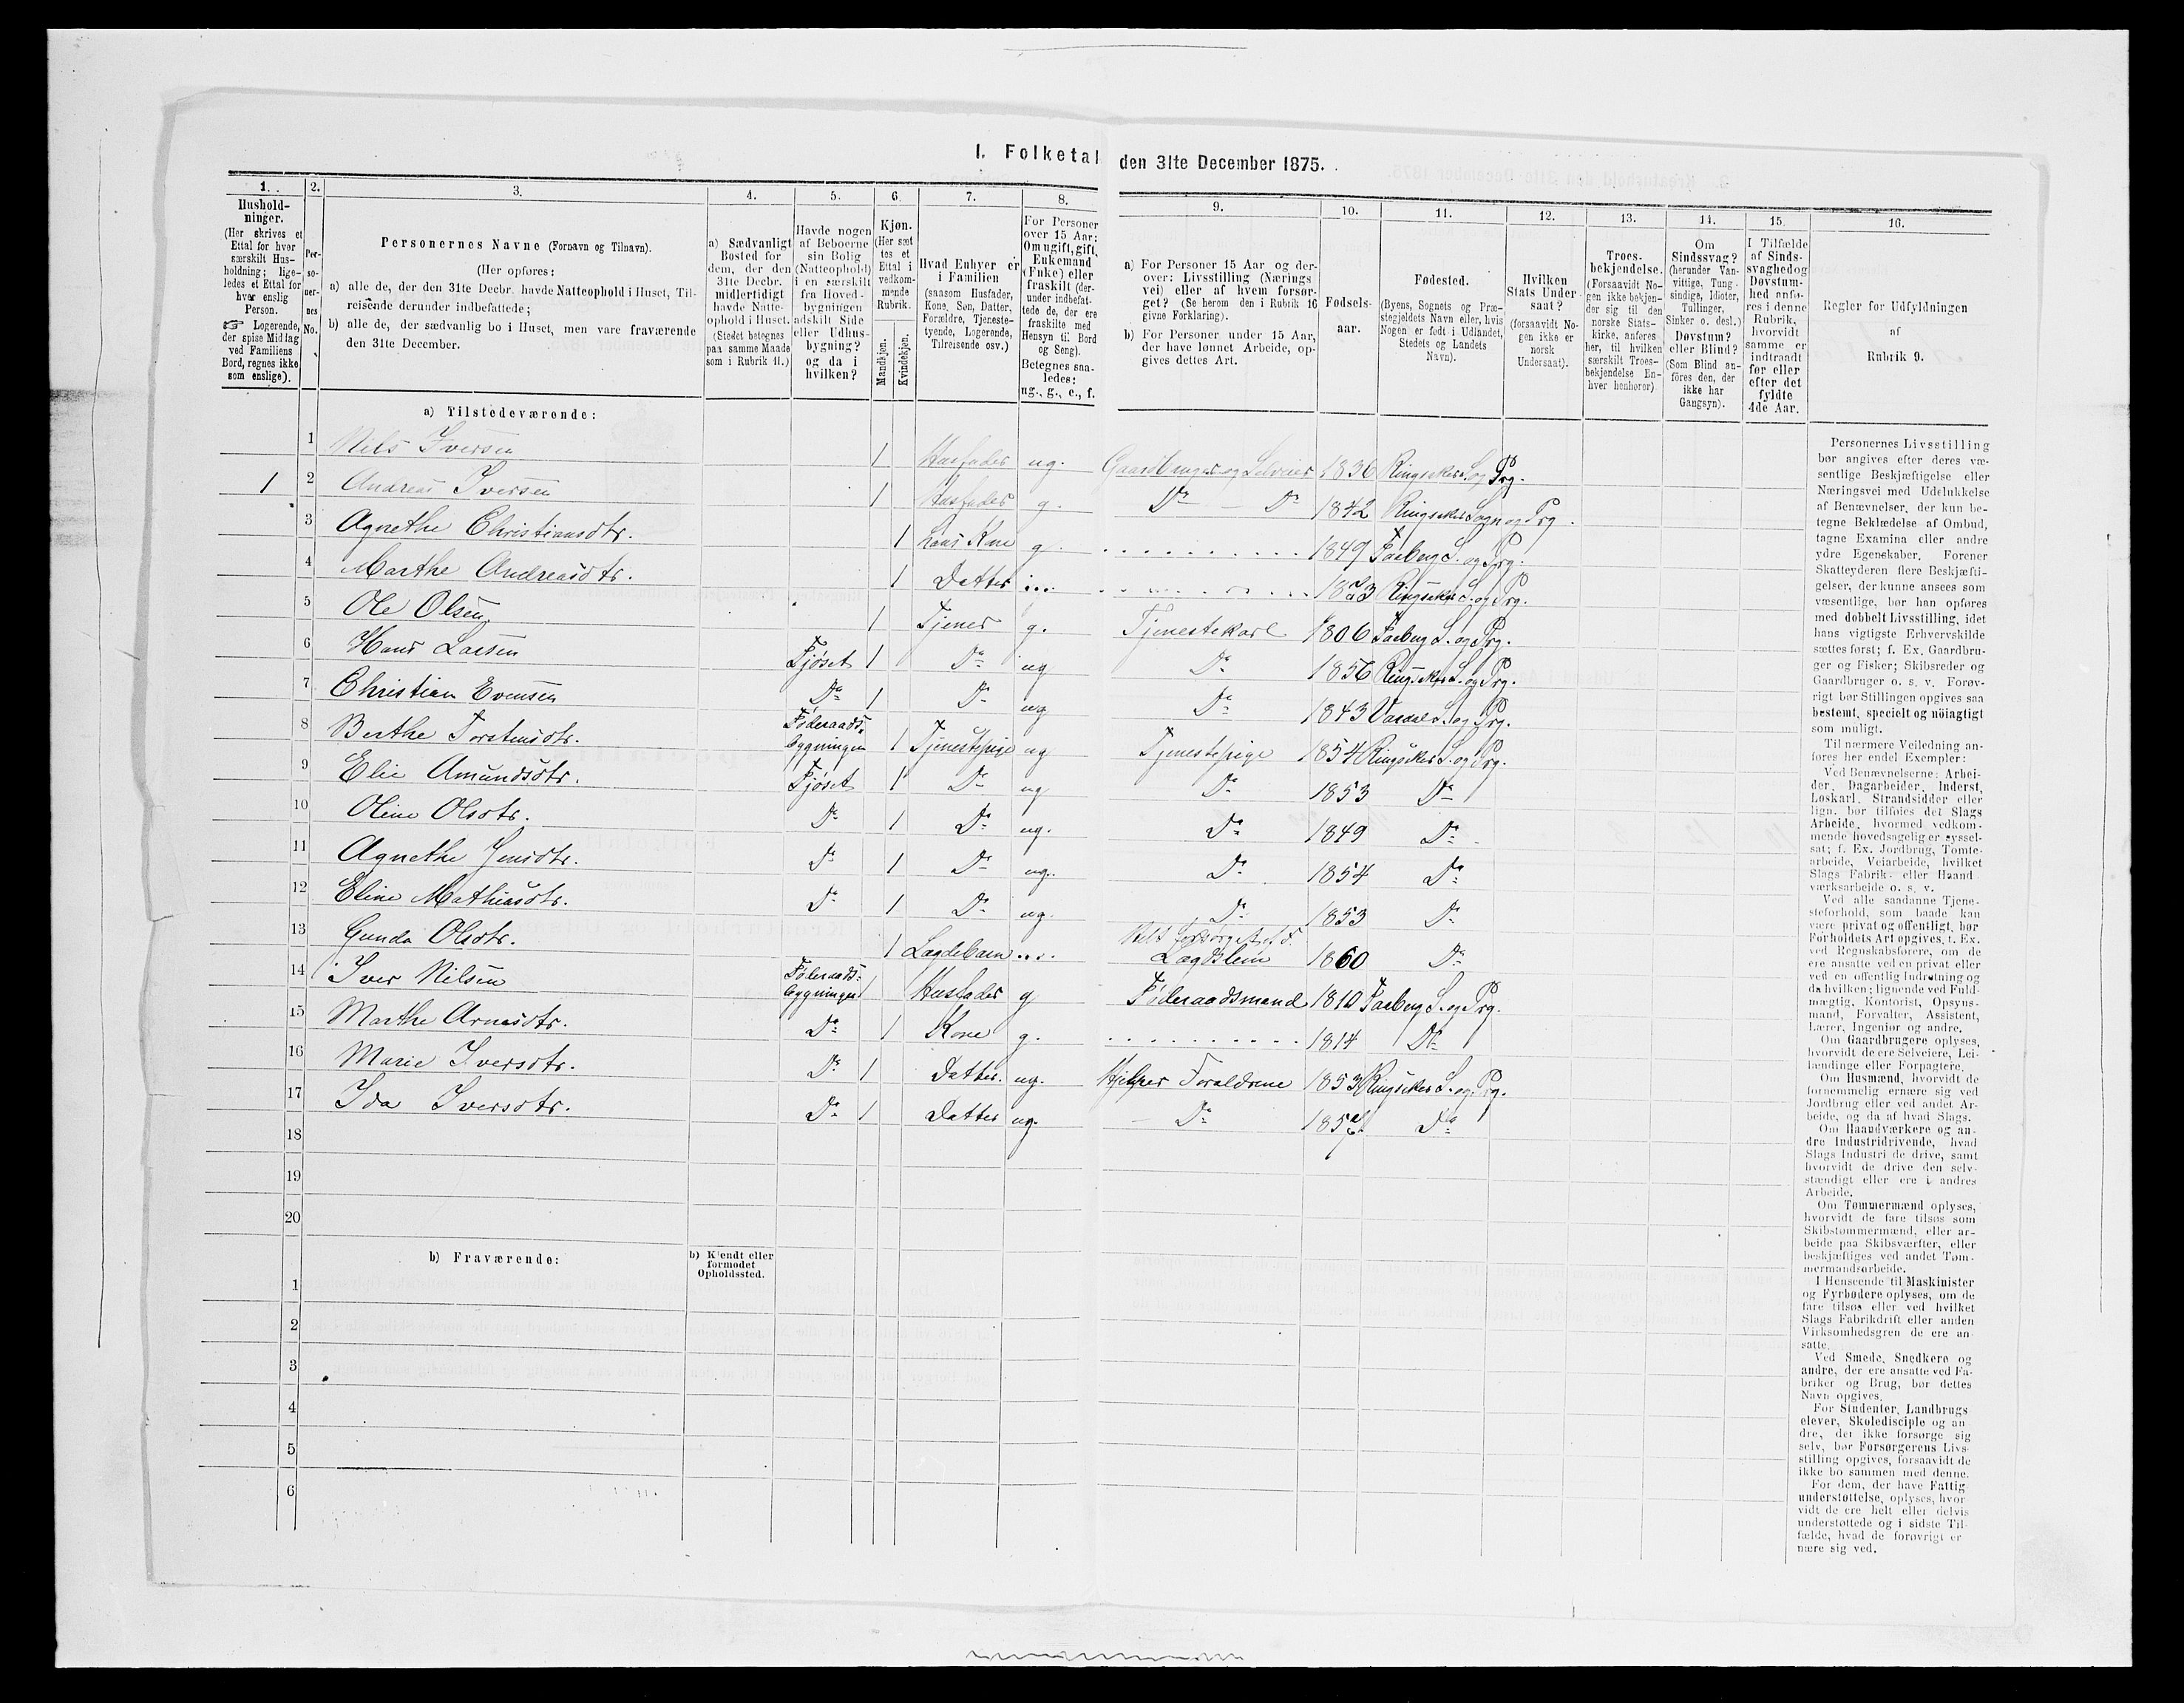 I. Folketal den 31te December 1875.
1. 2. 3. 4. 5. 6. 7. 8. 9. 10. 11. 12. 13. 14. 15. 16.
Hushold-
ninger.
(Her skrives et
Ettal for hver
særskilt Hus-
holdning; lige-
ledes et Ettal for
hver enslig
Person.
☞ Logerende,
der spise Middag
ved Familiens
Bord, regnes ikke
som enslige).
Per-
so-
ner-
nes
No.
Personernes Navne (Fornavn og Tilnavn).
(Her opføres:
a) alle de, der den 31te Decbr. havde Natteophold i Huset, Til-
reisende derunder indbefattede;
b) alle de, der sædvanlig bo i Huset, men vare fraværende
den 31te December.
a) Sædvanligt
Bosted for
dem, der den
31te Decbr.
midlertidigt
havde Natte-
ophold i Huset.
(Stedet betegnes
paa samme Maade
som i Rubrik 11.)
Havde nogen
af Beboerne
sin Bolig
(Natteophold)
i en særskilt
fra Hoved-
bygningen
adskilt Side
eller Udhus-
bygning?
og da i
hvilken?
Kjøn.
(Her sæt
tes et
Ettal i
vedkom-
mende
Rubrik.
Mandkjøn.
Kvindekjøn.
Hvad Enhver er
i Familien
(saasom Husfader,
Kone, Søn, Datter,
Forældre, Tjeneste-
tyende, Logerende,
Tilreisende osv.)
For Personer
over 15 Aar:
Om ugift, gift,
Enkemand
(Enke) eller
fraskilt (der-
under indbefat-
tede de, der ere
fraskilte med
Hensyn til Bord
og Seng).
Betegnes saa-
ledes:
ug., g., e., f.
a) For Personer 15 Aar og der-
over: Livsstilling (Nærings
vei) eller af hvem forsør-
get? (Se herom den i Rubrik 16
givne Forklaring).
b) For Personer under 15 Aar,
der have lønnet Arbeide, op-
gives dettes Art.
Fødsels-
aar.
Fødested.
(Byens, Sognets og Præ-
stegjeldets Navn eller, hvis
Nogen er født i Udlandet,
Stedets og Landets
Navn).
Hvilken
Stats Under-
saat?
(forsaavidt No-
gen ikke er
norsk
Undersaat).
Troes-
bekjendelse.
(Forsaavidt No-
gen ikke bekjen-
der sig til den
norske Stats-
kirke, anføres
her, til hvilken
særskilt Troes-
bekjendelse En-
hver henhører)
Om
Sindssvag?
(herunder Van-
vittige, Tung-
sindige, Idioter,
Tullinger,
Sinker o. desl.)
Døvstum?
eller Blind?
(Som Blind an-
føres den, der
ikke har
Gangsyn).
I Tilfælde
af Sinds-
svaghed og
Døvstum-
hed anfø-
res i denne
Rubrik,
hvorvidt
samme er
indtraadt
før eller
efter det
fyldte
4de Aar.
Regler for Udfyldningen
af
Rubrik 9.
a) Tilstedeværende:
1 Nils Iversen 1 Husfader ug. Gaardbruger og Selveier 1836 Ringsaker S. og Prg.
1 2 Andreas Iversen 1 Husfader g. Do — Do 1842 Ringsaker Sogn og Prg.
3 Agnethe Christiansdtr. 1 hans Kone g. 1849 Faaberg S. og Prg.
4 Marthe Andreasdtr. 1 Datter 1873 Ringsaker S. og Prg.
5 Ole Olsen 1 Tjener g. Tjenestekarl 1806 Faaberg S. og Prg.
6 Hans Larsen Fjøset 1 Do ug Do 1856 Ringsaker S. og Prg.
7 Christian Evensen Do 1 Do ug Do 1843 Vardal S. og Prg.
8 Berthe Torstensdtr. Føderaads-
bygningen 1 Tjenestepige ug Tjenestepige 1854 Ringsaker S. og Prg.
9 Elie Amundsdtr. Fjøset 1 Do ug Do 1853 Do
10 Oline Olsdtr. Do 1 Do ug. Do 1849 Do
11 Agnethe Jensdtr. Do 1 Do ug. Do 1854 Do
12 Eline Mathiasdtr. Do 1 Do ug. Do 1853 Do
13 Gunda Olsdtr. 1 Lægdebarn Helt forsørget af
Lægdslem 1860 Do
14 Iver Nilsen Føderaads-
bygningen 1 Husfader g Føderaadsmand 1810 Faaberg S. og Prg.
15 Marthe Arnesdtr. Do 1 Kone g. 1814 Do
16 Marie Iversdtr. Do 1 Datter. ug. Hjelper Forældrene 1853 Ringsaker S. og Prg.
17 Ida Iversdtr. Do 1 Datter ug. Do Do
18
19
20
b) Fraværende:
b) Kjendt eller
formodet
Opholdssted.
1
2
3
4
5
6
Personernes Livsstilling
bør angives efter deres væ-
sentlige Beskjæftigelse eller
Næringsvei med Udelukkelse
af Benævnelser, der kun be-
tegne Beklædelse af Ombud,
tagne Examina eller andre
ydre Egenskaber. Forener
Skatteyderen flere Beskjæfti-
gelser, der kunne ansees som
væsentlige, bør han opføres
med dobbelt Livsstilling, idet
hans vigtigste Erhvervskilde
sættes først; f. Ex. Gaardbru-
ger og Fisker; Skibsreder og
Gaardbruger o. s. v. Forøv-
rigt bør Stillingen opgives saa
bestemt, specielt og nöiagtigt
som muligt.
Til nærmere Veiledning an-
føres her endel Exempler:
Ved Benævnelserne: Arbei-
der, Dagarbeider, Inderst,
Løskarl, Strandsidder eller
lign. bør tilføies det Slags
Arbeide, hvormed vedkom-
mende hovedsagelig er syssel-
sat; f. Ex. Jordbrug, Tomte-
arbeide, Veiarbeide, hvilket
Slags Fabrik- eller Haand-
værksarbeide o. s. v.
Ved alle saadanne Tjene-
steforhold, som baade kan
være privat og offentligt, bør
Forholdets Art opgives, t. Ex.
ved Regnskabsførere, om de
ere ansatte ved en privat eller
ved en offentlig Indretning og
da hvilken; lignende ved Fuld-
mægtig, Kontorist, Opsyns-
mand, Forvalter, Assistent,
Lærer, Ingeniør og andre.
Om Gaardbrugere oplyses,
hvorvidt de ere Selveiere, Lei-
lændinge eller Forpagtere.
Om Husmænd, hvorvidt de
fornemmelig ernære sig ved
Jordbrug eller ved andet Ar-
beide, og da af hvad Slags.
Om Haandværkere og an-
dre Industridrivende, hvad
Slags Industri de drive, samt
hvorvidt de drive den selv-
stændigt eller ere i andres
Arbeide.
Om Tømmermænd oplyses,
hvorvidt de fare tilsøs som
Skibstømmermænd, eller ar-
beide paa Skibsværfter, eller
beskjæftiges ved andet Tøm-
mermandsarbeide.
I Henseende til Maskinister
og Fyrbødere oplyses, om de
fare tilsøs eller ved hvilket
Slags Fabrikdrift eller anden
Virksomhedsgren de ere an-
satte.
Ved Smede, Snedkere og
andre, der ere ansatte ved Fa-
briker og Brug, bør dettes
Navn opgives.
For Studenter, Landbrugs-
elever, Skoledisciple og an-
dre, der ikke forsørge sig
selv, bør Forsørgerens Livs-
stilling opgives, forsaavidt de
ikke bo sammen med denne.
For dem, der have Fattig-
understøttelse, oplyses, hvor-
vidt de ere helt eller delvis
understøttede og i sidste Til-
fælde, hvad de forøvrigt er-
nære sig ved.